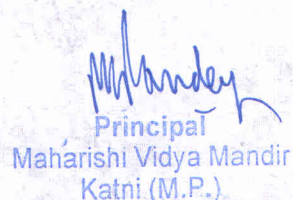 Principal
Maharishi Vidya Mandir
Katni (M.P.)